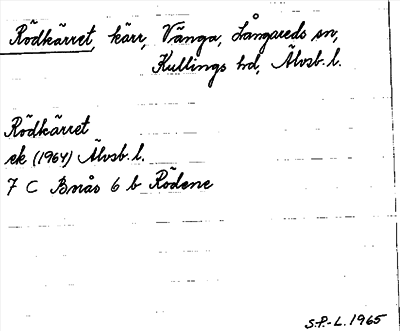 Rödkärret, kärr, Vänga, Långareds sn,
Kullings hd, Älvsb. l.
Rödkärret
ek (1964) Älvsb. l.
7 C Bnås 6 b Rödene
S.P.-L. 1965